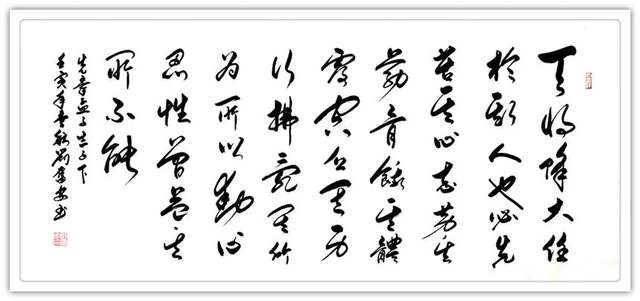 天将降大任
於斯人也必先
苦其心志劳其
筋骨餓其體
膚空乏其身
行拂亂其所
為所以動心
忍性曾益其
所不能
先秦孟子
壬寅年劉